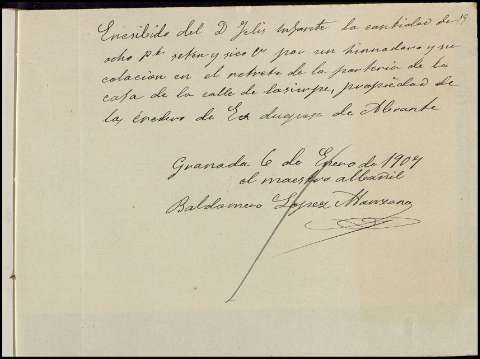 Enrisibido del D Felis Infante la cantidad de 19
ocho pts seten y sico cs por un hinnadoro y su
colacion en el retrete de la porteria de la
casa de la calle de lasierpe, propiedad de
la eredero de Ex duqesa de Abrante
Granada 6 de Enero de 1909
el maestro albañil
Baldomero Lopez Manzano